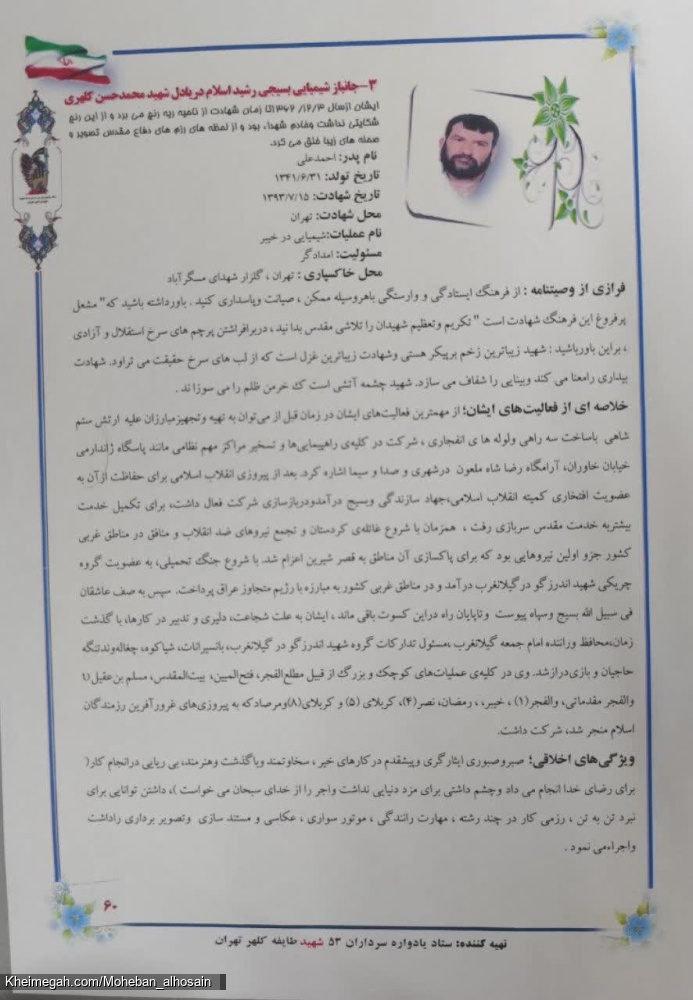 ۳-جانباز شیمیایی بسیجی رشید اسلام دریادل شهید محمدحسن کلهری
ایشان ازسال ۱۳۶۲/۱۲/۳تا زمان شهادت از ناحیه ریه رنج می برد و از این رنج
شکایتی نداشت وخادم شهداء بود و از لحظه های رزم های دفاع مقدس تصویر و
صحنه های زیبا خلق می کرد.
نام پدر: احمدعلی
تاریخ تولد: ۱۳۴۱/۶/۳۱
تاریخ شهادت: ۱۳۹۳/۷/۱۵
محل شهادت: تهران
نام عملیات:شیمیایی در خیبر
مسئولیت: امدادگر
محل خاکسپاری : تهران ، گلزار شهدای مسگرآباد
فرازی از وصیتنامه : از فرهنگ ایستادگی و وارستگی باهروسیله ممکن ، صیانت وپاسداری کنید . باورداشته باشید که" مشعل
پرفروغ این فرهنگ شهادت است " تکریم وتعظیم شهیدان را تلاشی مقدس بدانید ، دربرافراشتن پرچم های سرخ استقلال و آزادی
، براین باورباشید : شهید زیباترین زخم برپیکر هستی وشهادت زیباترین غزل است که از لب های سرخ حقیقت می تراود. شهادت
بیداری رامعنا می کند وبینایی را شفاف می سازد. شهید چشمه آتشی است ک خرمن ظلم را می سوزا ند .
خلاصه ای از فعالیت‌های ایشان؛ از مهمترین فعالیت‌های ایشان در زمان قبل از می‌توان به تهیه وتجهیزمبارزان علیه ارتش ستم
شاهی باساخت سه راهی ولوله ها ی انفجاری ، شرکت در کلیه‌ی راهپیمایی‌ها و تسخیر مراکز مهم نظامی مانند پاسگاه ژاندارمی
خیابان خاوران، آرامگاه رضا شاه ملعون درشهرری و صدا و سیما اشاره کرد. بعد از پیروزی انقلاب اسلامی برای حفاظت ازآن به
عضویت افتخاری کمیته انقلاب اسلامی،جهاد سازندگی وبسیج درآمدودربازسازی شرکت فعال داشت، برای تکمیل خدمت
بیشتربه خدمت مقدس سربازی رفت ، همزمان با شروع غائله‌ی کردستان و تجمع نیروهای ضد انقلاب و منافق در مناطق غربی
کشور جزو اولین نیروهایی بود که برای پاکسازی آن مناطق به قصر شیرین اعزام شد. با شروع جنگ تحمیلی، به عضویت گروه
چریکی شهید اندرزگو درگیلانغرب درآمد و در مناطق غربی کشور به مبارزه با رژیم متجاوز عراق پرداخت. سپس به صف عاشقان
فی سبیل الله بسیج وسپاه پیوست وتاپایان راه دراین کسوت باقی ماند ، ایشان به علت شجاعت، دلیری و تدبیر در کارها، با گذشت
زمان،محافظ وراننده امام جمعه گیلانغرب ،مسئول تدارکات گروه شهید اندرزگو در گیلانغرب، بانسیرانات، شیاکوه، چغاله‌وندتنگه
حاجیان و بازی‌درازشد. وی در کلیه‌ی عملیات‌های کوچک و بزرگ از قبیل مطلع‌الفجر، فتح‌المبین، بیت‌المقدس، مسلم بن‌عقیل(۱
والفجر مقدماتی، والفجر(۱) ، خیبر، ، رمضان، نصر(۴)، کربلای (۵) و کربلای(۸)ومرصادکه به پیروزی‌های غرورآفرین رزمندگان
اسلام منجر شد، شرکت داشت.
ویژگی‌های اخلاقی؛ صبروصبوری ایثارگری وپیشقدم درکارهای خیر ، سخاوتمند وباگذشت وهنرمند، بی ریایی درانجام کار(
برای رضای خدا انجام می داد وچشم داشتی برای مزد دنیایی نداشت واجر را از خدای سبحان می خواست )، داشتن توانایی برای
نبرد تن به تن ، رزمی کار در چند رشته ، مهارت رانندگی ، موتور سواری ، عکاسی و مستند سازی وتصویر برداری راداشت
واجراءمی نمود .
۶۰
تهیه کننده: ستاد یادواره سرداران ۵۳ شهید طایفه کلهر تهران
Kheimegah.com/Moheban_alhosain